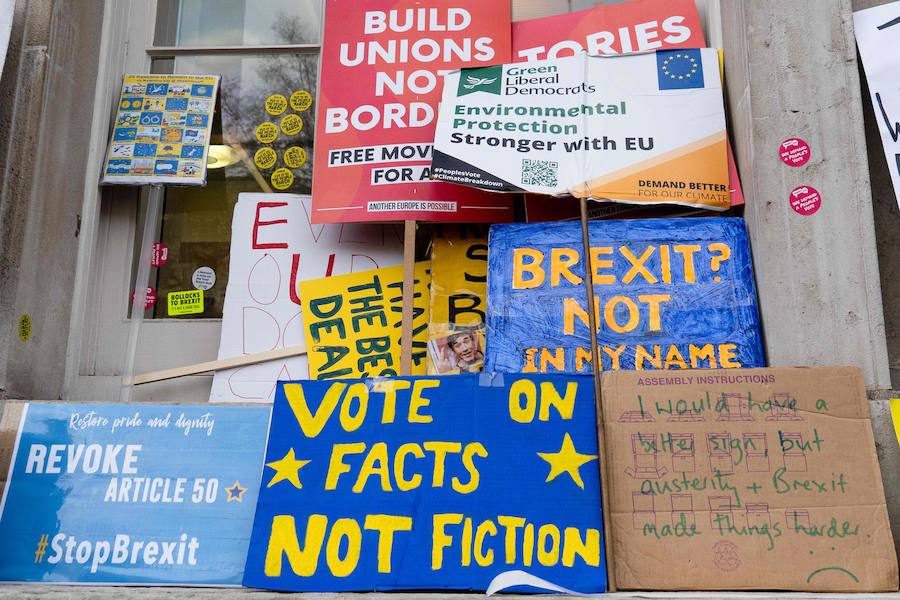 BUILD
UNIONS
NOT
BORDE
FREE MOV
FOR A
ANOTHER EUROPE IS POSSIBLE
TORIES
Green
Liberal
Democrats
Environmental
Protection
Stronger with EU
#PeoplesVote
#ClimateBreakdown
DEMAND BETTER
FOR OUR CLIMATE
BOLLOCKS
TO BREXIT
E
OU
DO
CA
THE BES
DEA
S
B
BREXIT?
NOT
IN MY NAME
Restore pride and dignity
REVOKE
ARTICLE 50
#StopBrexit
VOTE ON
FACTS
NOT FICTION
ASSEMBLY INSTRUCTIONS
I would have a
better sign, but
austerity + Brexit
made things harder.